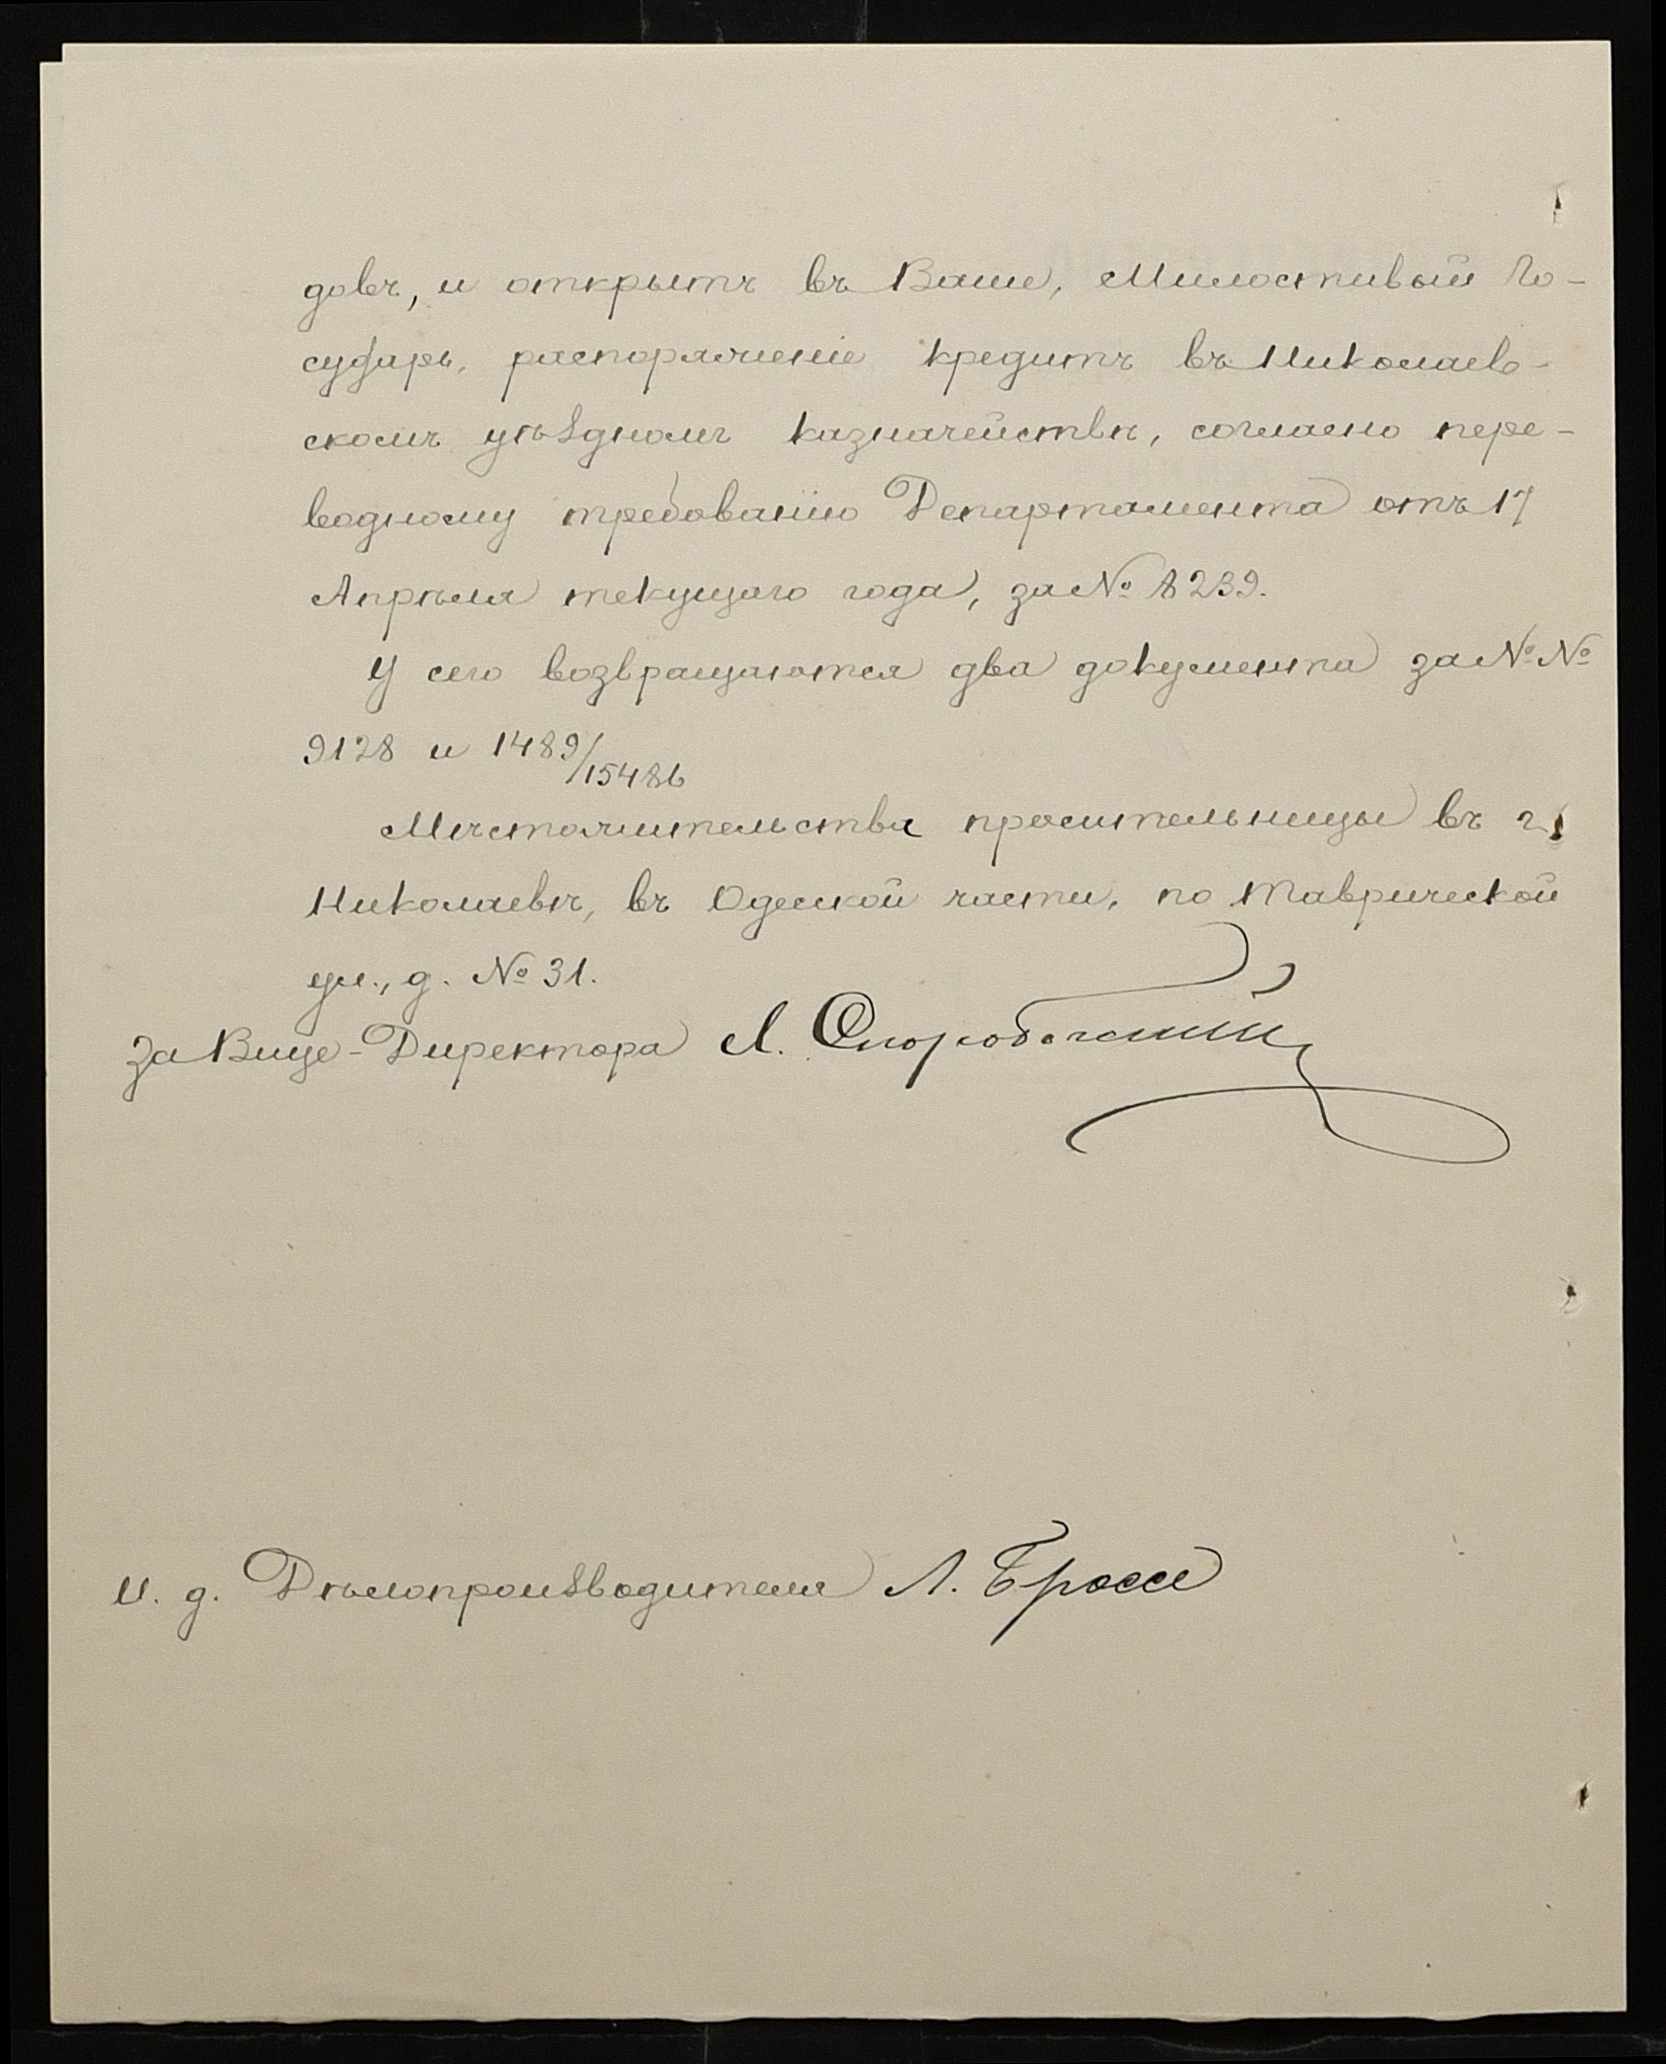 довъ, и открытъ въ Ваше, Милостивый Го-
сударь, распоряженіе кредитъ въ Николаев-
скомъ уѣздномъ казначействѣ, согласно пере-
водному требованію Департамента отъ 17
Апрѣля текущаго года, за № 8239.
У сего возвращаются два документа за №№
9128 и 1489/15486
Мѣстожительство просительницы въ г.
Николаевѣ, въ Одесской части, по Таврической
ул., д. № 31.
За Вице-Директора
И. д. Дѣлопроизводителя Л. Броссе